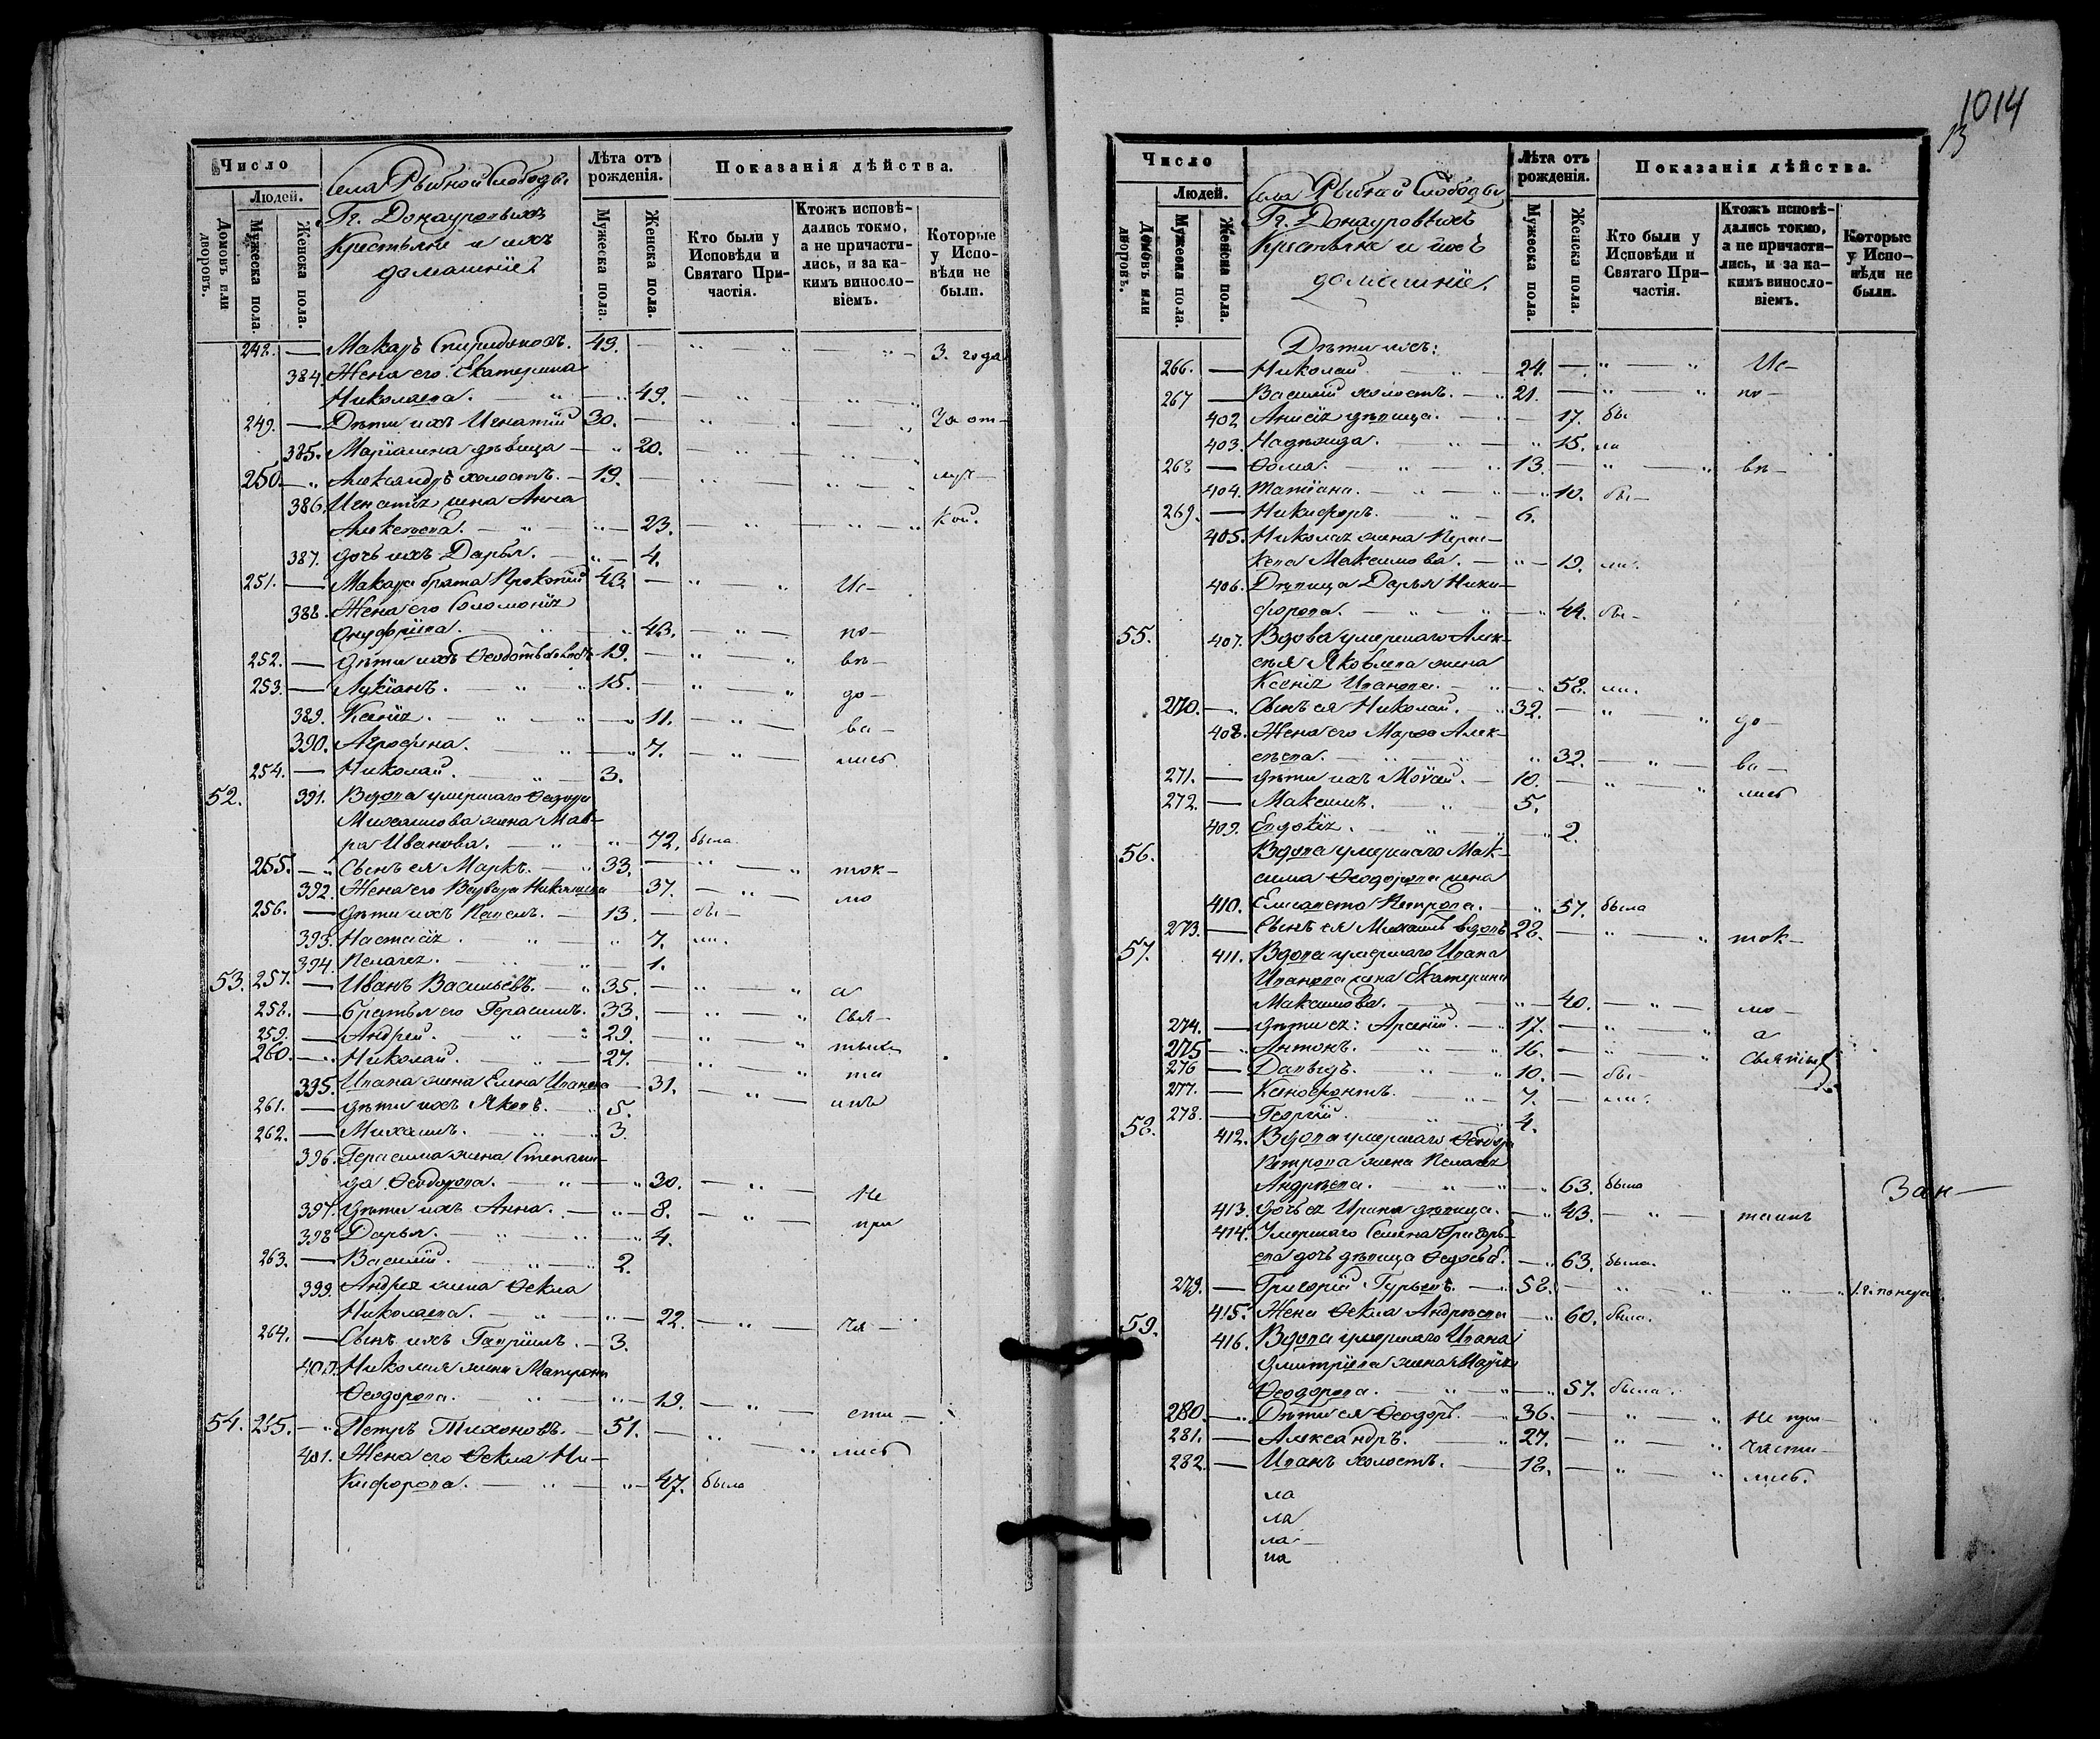 1014
13
Число
Людей.
Домовъ или дворовъ.
Мужеска пола.
Женска пола.
Села Рыбной Слободы
Гг. Донауровыхъ
Крестьяне и ихъ
домашніе
Лѣта отъ рожденія.
Мужеска пола.
Женска пола.
Показанія дѣйства.
Кто были у Исповѣди и Святаго Причастія.
Ктожъ исповѣдались токмо, а не причастились, и за какимъ винословіемъ.
Которые у Исповѣди не были.
248. — Макаръ Спиридоновъ. 49. — 3. года
384. Жена его Екатерина
Николаева. 49.
249. — Дѣти ихъ Игнатій 30. — За от-
385. Маріамна дѣвица — 20.
250. — Александръ холостъ. — 19. — луч-
386. Игнатія жена Анна
Алексеева. — 23. — кой.
387. дочь ихъ Дарья. — 4.
251. — Макара брата Прокопій 43 — Ис-
388. Жена его Соломонія
Онуфріева. — 43. — по-
252. — дѣти ихъ 19. — вѣ-
253. — Лукіанъ. — 15. — до-
389. Ксенія. — 11. — ва-
390. Агрофена. — 7. — лись
254. — Николай. — 3.
52. 391. Вдова умершаго Феодора
Михайлова жена Мав-
ра Иванова. — 72. была
255. — Сынъ ея Маркъ. — 33. — ток-
392. Жена его Варвара Николаева 37. — мо
256. — дѣти ихъ Павелъ. — 13. — бы-
393. Настасія. — 7. ли.
394. Пелагея. — 1.
53. 257. — Иванъ Васильевъ. — 35. — а
258. — братья его Герасимъ. 33. — Свя-
259. — Андрей. — 29. — тыхъ
260. — Николай. — 27. — та
395. Ивана жена Елена Иванова — 31. — инъ
261. — дѣти ихъ Яковъ. — 5.
262. — Михаилъ. — 3.
396. Герасима жена Степани-
да Феодорова. — 30. — не
397. дѣти ихъ Анна. — 8. — при
398 Дарья. — 4.
263. — Василій. — 2.
399. Андрея жена Фекла
Николаева. — 22. — ча-
264. — Сынъ ихъ Гавріилъ. — 3.
400. Николая жена Матрона
Феодорова. — 19. — сти-
54. 265. — Петръ Тихоновъ. — 51. — лись
401. Жена его Фекла Ни-
кифорова. — 47. была
Число
Людей.
Домовъ или дворовъ.
Мужеска пола.
Женска пола.
Села Рыбной Слободы
Гг. Донауровыхъ
Крестьяне и ихъ
домашніе.
Лѣта отъ рожденія.
Мужеска пола.
Женска пола.
Показанія дѣйства.
Кто были у Исповѣди и Святаго Причастія.
Ктожъ исповѣдались токмо, а не причастились, и за какимъ винословіемъ.
Которые у Исповѣди не были.
Дѣти ихъ:
266. — Николай — 24. — Ис-
267 — Василій холостъ. — 21. — по-
402 Анисія дѣвица. — 17. бы
403. Надежда. — 15. ли
268. — Фома. — 13. — вѣ-
404. Татіана. — 10. бы-
269. — Никифоръ. — 6.
405. Николая жена Парас-
кева Максимова. — 19. ли.
406. Дѣвица Дарья Ники-
форова. — 44. бы-
55. 407. Вдова умершаго Алек-
сѣя Яковлева жена
Ксенія Иванова. — 58. ли.
270. — Сынъ ея Николай. — 32. — до-
408. Жена его Марфа Алек-
сѣева. — 32. — ва-
271. — дѣти ихъ Мойсей. — 10. — лись
272. — Максимъ. — 5.
409. Евдокія. — 2.
56. Вдова умершаго Мак-
сима Феодорова жена
410. Елисавета Петрова. — 57. была
273. — Сынъ ея Михаилъ вдовъ 28. — ток-
57. 411. Вдова умершаго Ивана
Иванова жена Екатерина
Максимова. — 40. — мо-
274. — дѣти ея: Арсеній. — 17. — а
275 — Антонъ. — 16. — Святыхъ
276 — Давыдъ. — 10. — бы-
277. — Ксенофонтъ. — 7. — ли.
278. — Георгій. — 4.
58. 412. Вдова умершаго Феодора
Петрова жена Пелагея
Андреева. — 63. была
Зан-
413. дочь ея Ирина дѣвица. — 43. — таинъ
414. Умершаго Семена Григорь-
ева дочь дѣвица Федосья. — 63. была.
279. — Григорій Гурьевъ. — 58. — 1. г. по неуд.
415. Жена Фекла Андреева — 60. была.
59. 416. Вдова умершаго Ивана
Дмитріева жена Марія
Феодорова. — 57. была.
280. — Дѣти ея Феодоръ. — 36. — не при-
281. — Александръ. — 27. — части-
282. — Иванъ холостъ. — 18. — лись.
ла
ла
ла
на